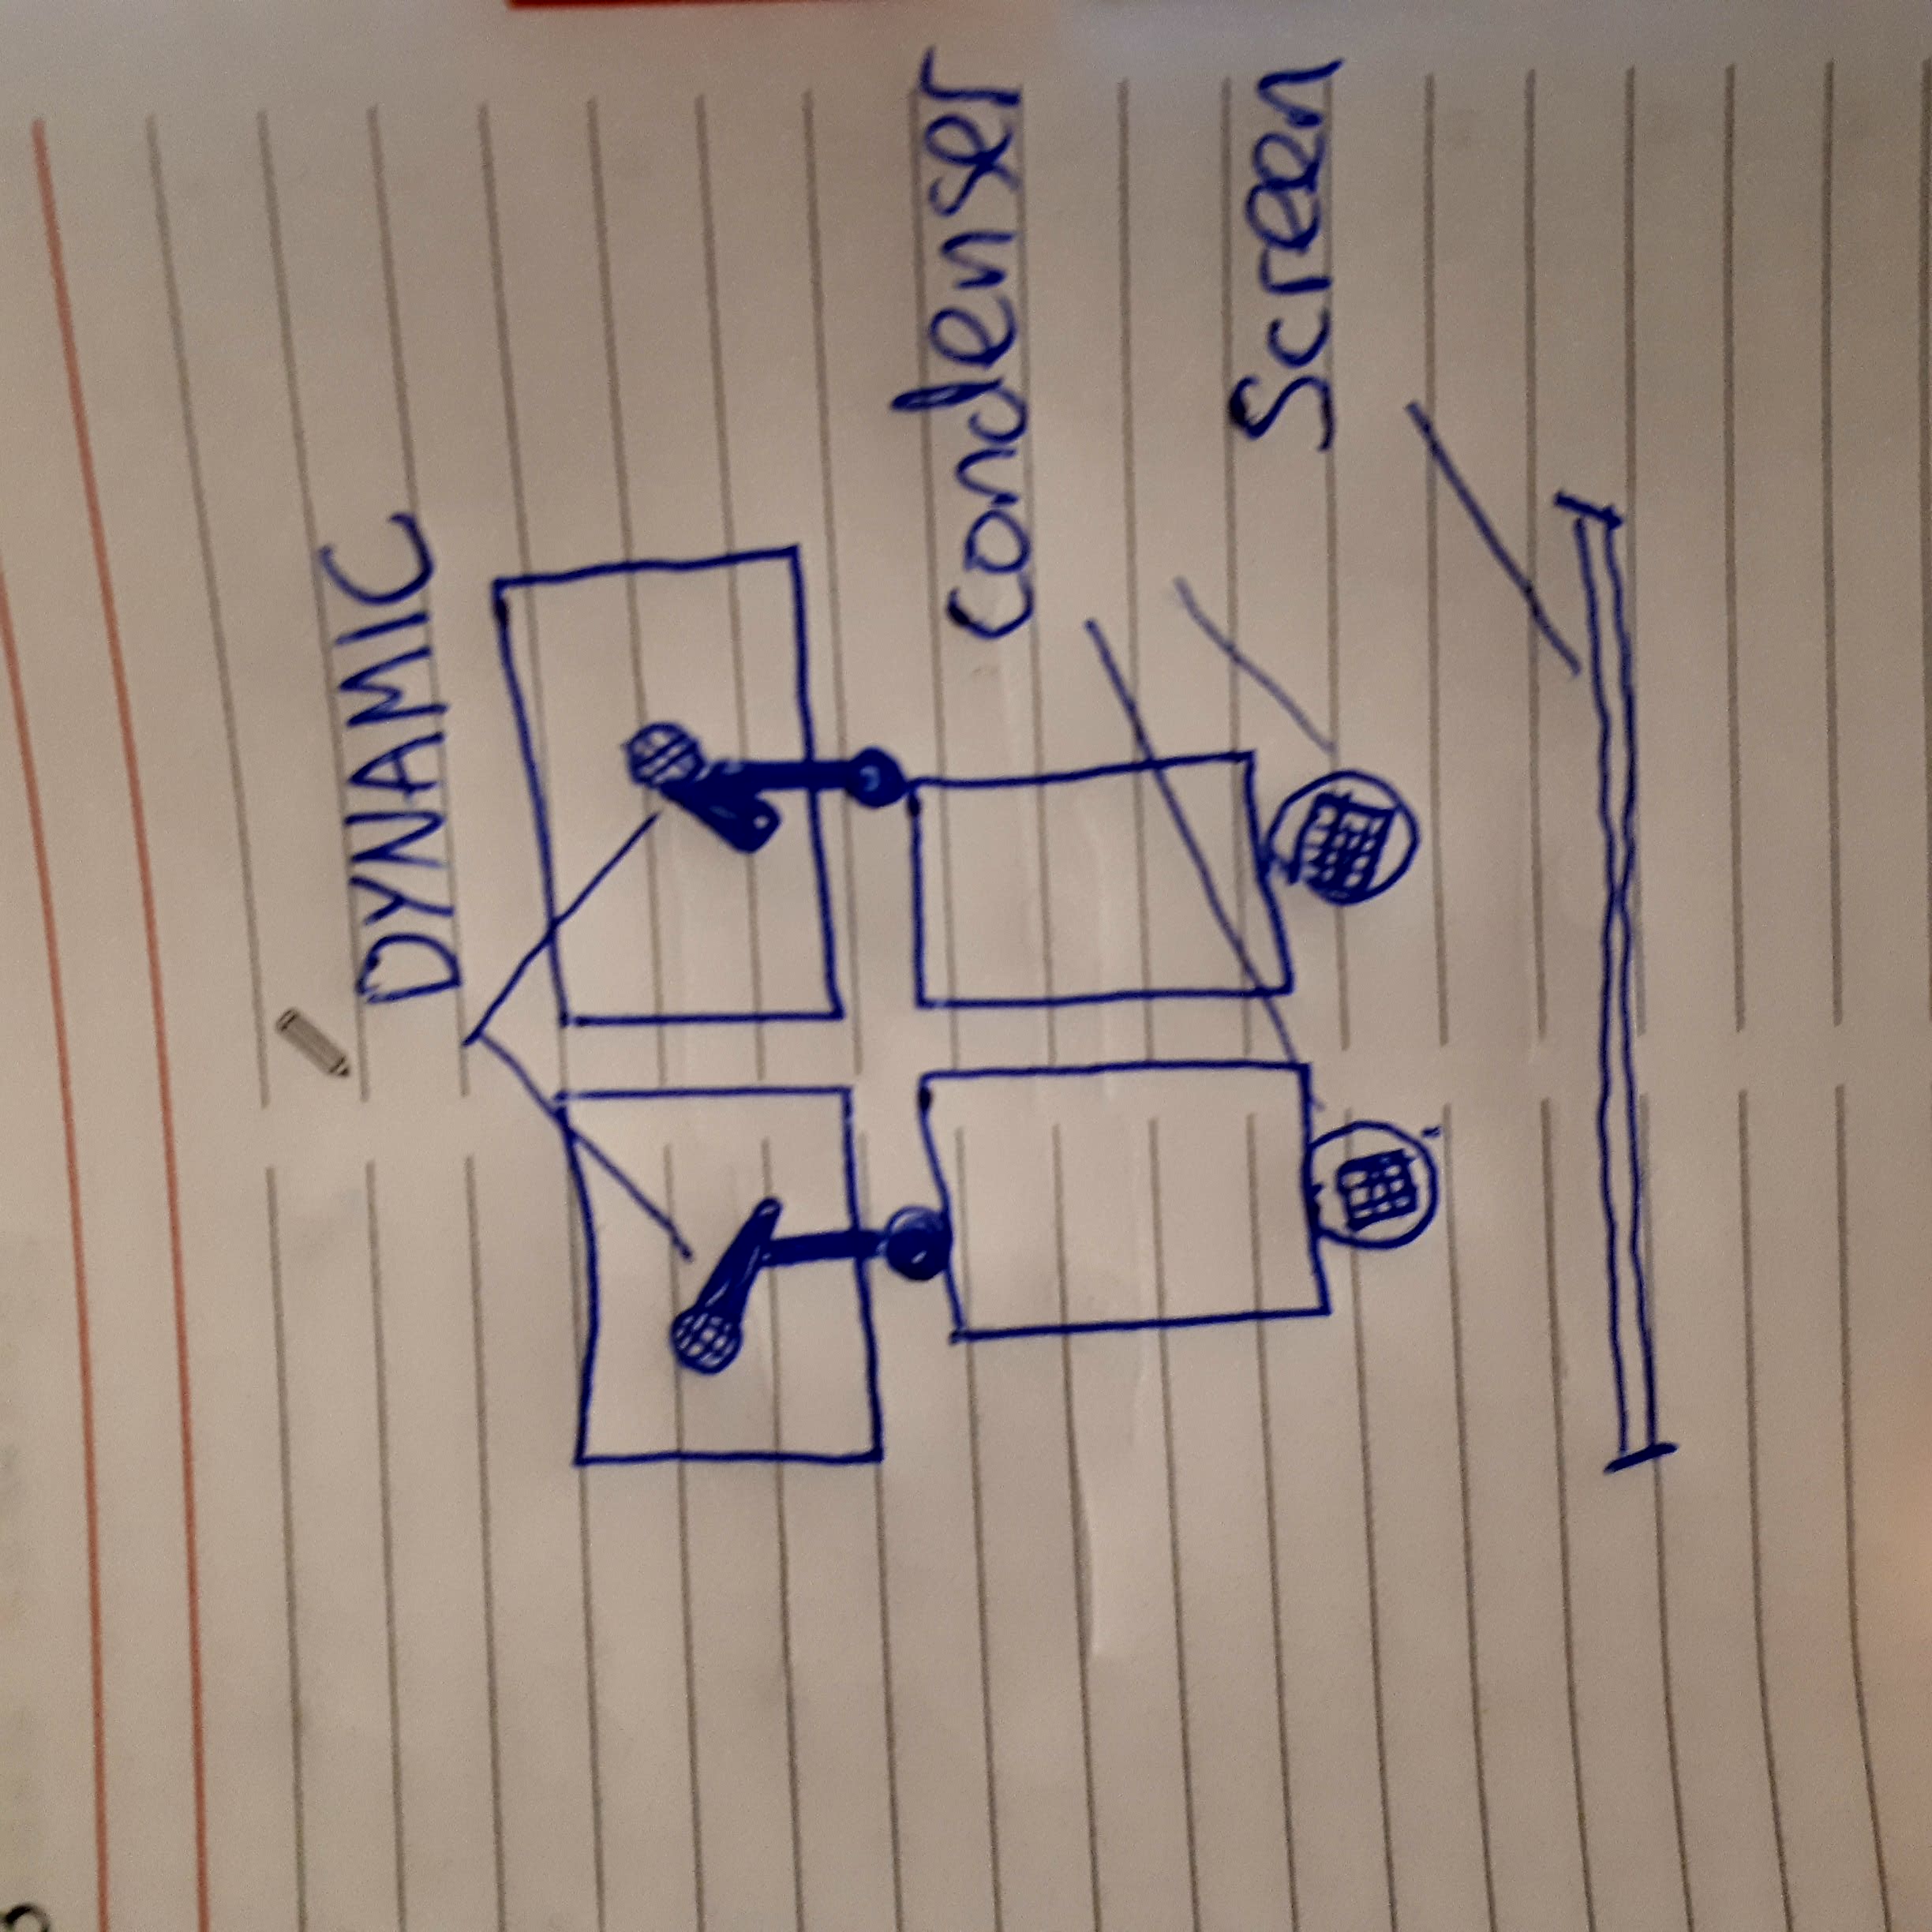 DYNAMIC
condenser
Screen